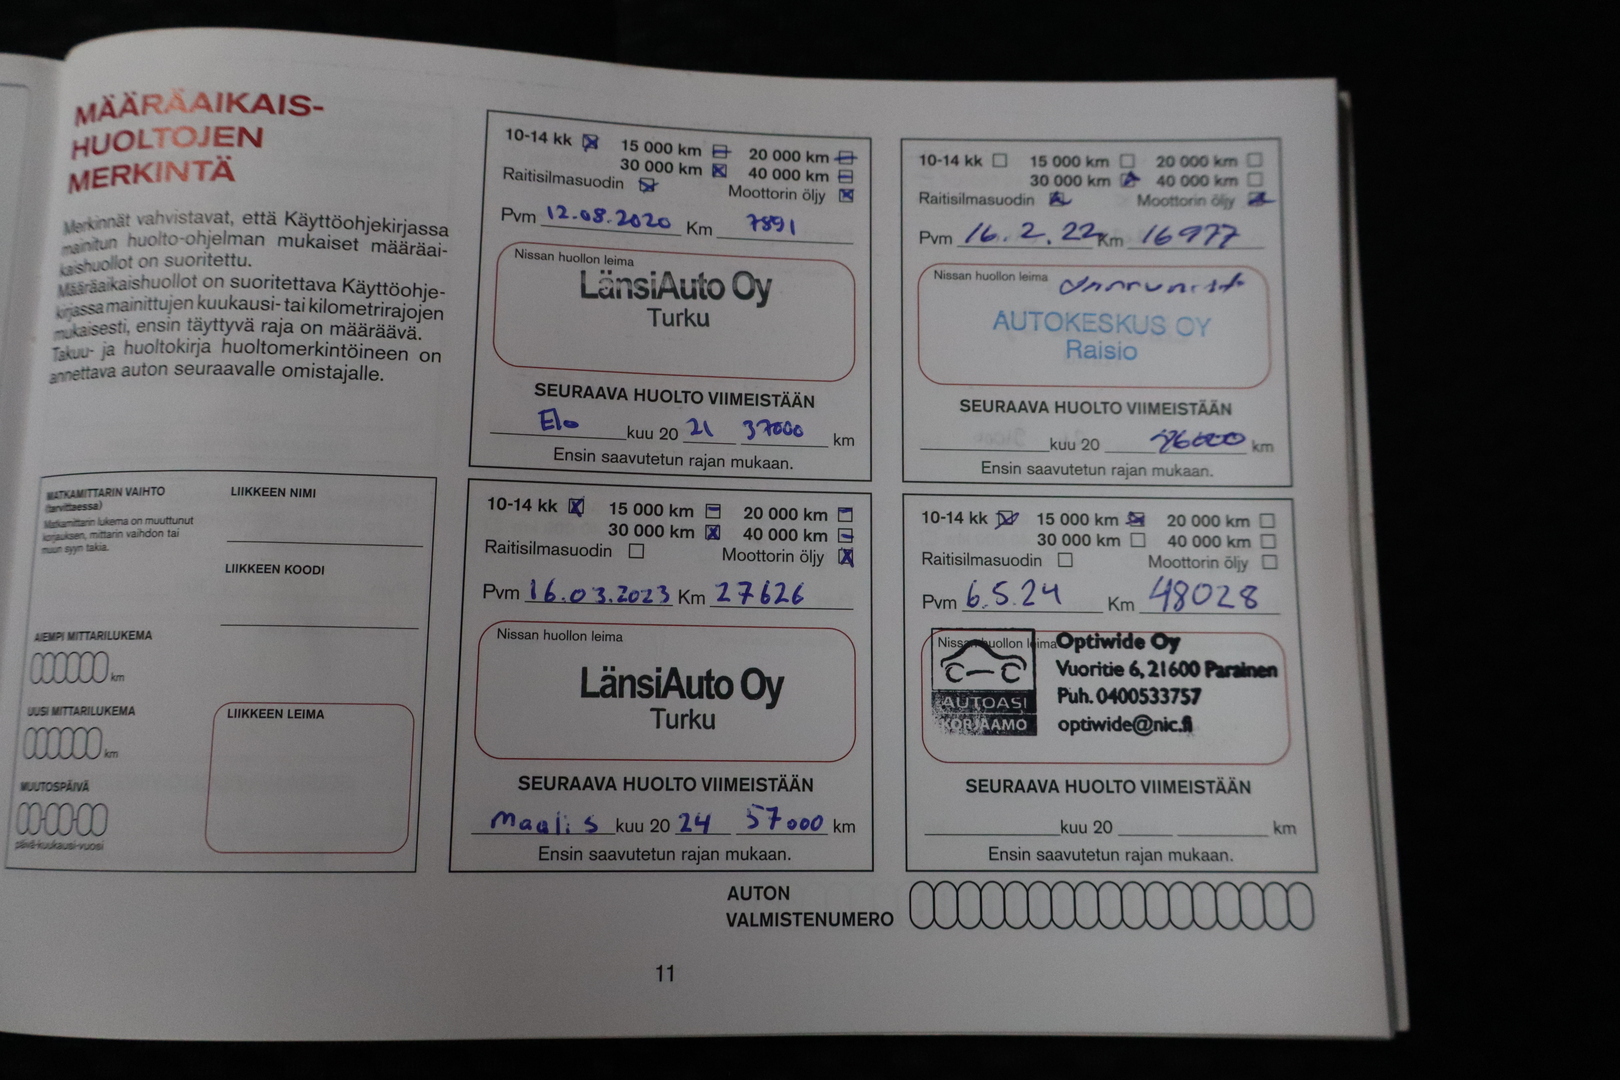 MÄÄRÄAIKAIS-
HUOLTOJEN
MERKINTÄ
Merkinnät vahvistavat, että Käyttöohjekirjassa
mainitun huolto-ohjelman mukaiset määräai-
kaishuollot on suoritettu.
Määräaikaishuollot on suoritettava Käyttöohje-
kirjassa mainittujen kuukausi- tai kilometrirajojen
mukaisesti, ensin täyttyvä raja on määräävä.
Takuu- ja huoltokirja huoltomerkintöineen on
annettava auton seuraavalle omistajalle.
MATKAMITTARIN VAIHTO
(tarvittaessa)
Matkamittarin lukema on muuttunut
korjauksen, mittarin vaihdon tai
muun syyn takia.
AIEMPI MITTARILUKEMA
km
UUSI MITTARILUKEMA
km
MUUTOSPÄIVÄ
päivä-kuukausi-vuosi
LIIKKEEN NIMI
LIIKKEEN KOODI
LIIKKEEN LEIMA
10-14 kk 15 000 km 20 000 km
30 000 km 40 000 km
Raitisilmasuodin Moottorin öljy
Pvm 12.08.2020 Km 7891
Nissan huollon leima
LänsiAuto Oy
Turku
SEURAAVA HUOLTO VIIMEISTÄÄN
Elo kuu 20 21 37000 km
Ensin saavutetun rajan mukaan.
10-14 kk 15 000 km 20 000 km
30 000 km 40 000 km
Raitisilmasuodin Moottorin öljy
Pvm 16.2.22 Km 16977
Nissan huollon leima
AUTOKESKUS OY
Raisio
SEURAAVA HUOLTO VIIMEISTÄÄN
kuu 20 46000 km
Ensin saavutetun rajan mukaan.
10-14 kk 15 000 km 20 000 km
30 000 km 40 000 km
Raitisilmasuodin Moottorin öljy
Pvm 16.03.2023 Km 27626
Nissan huollon leima
LänsiAuto Oy
Turku
SEURAAVA HUOLTO VIIMEISTÄÄN
Maalis kuu 20 24 57000 km
Ensin saavutetun rajan mukaan.
10-14 kk 15 000 km 20 000 km
30 000 km 40 000 km
Raitisilmasuodin Moottorin öljy
Pvm 6.5.24 Km 48028
Nissan huollon leima
AUTOASI
KORJAAMO
Optiwide Oy
Vuoritie 6, 21600 Parainen
Puh. 0400533757
optiwide@nic.fi
SEURAAVA HUOLTO VIIMEISTÄÄN
kuu 20 km
Ensin saavutetun rajan mukaan.
AUTON
VALMISTENUMERO
11